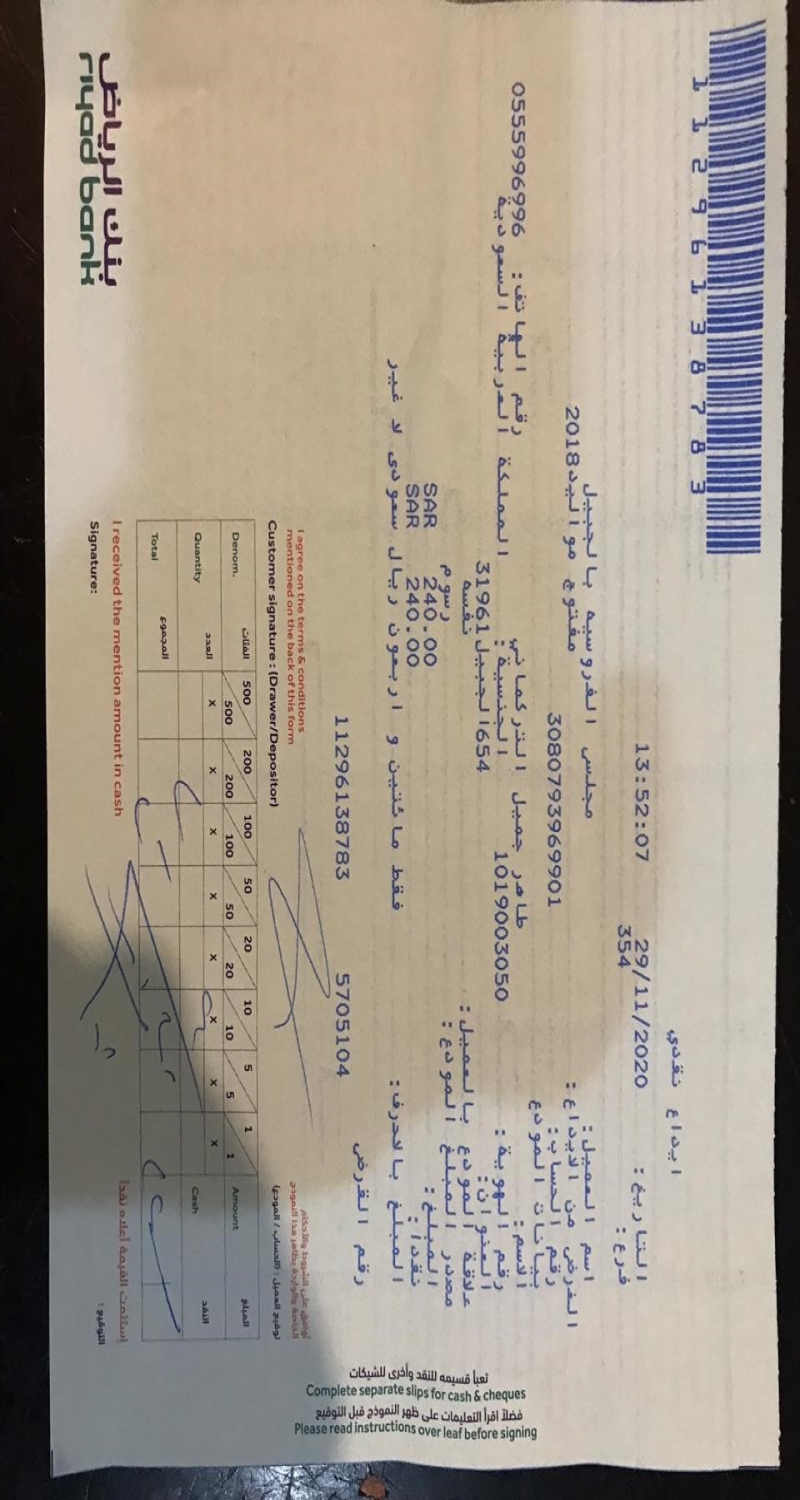 1 1 2 9 6 1 3 8 7 8 3
ايداع نقدي
التاريخ : 29/11/2020 13:52:07
فرع : 354
اسم العميل : مجلس الفروسيه بالجبيل
الغرض من الايداع : مفتوح مواليد2018
رقم الحساب : 3080793969901
بيانات المودع
الاسم : طاهر جميل التركماني رقم الهاتف : 0555996996
رقم الهوية : 1019003050 الجنسية : المملكة العربية السعودية
العنوان : 654الجبيل31961
علاقة المودع بالعميل : نفسه
مصدر المبلغ المودع : رسوم
المبلغ : SAR 240.00
نقدا : SAR 240.00
المبلغ بالاحرف : فقط مائتين و اربعون ريال سعودى لا غير
رقم القرض 5705104 11296138783
I agree on the terms & conditions
mentioned on the back of this form
Customer signature : (Drawer/Depositor)
توقيع العميل : (الساحب / المودع)
Denom. الفئات 500 500 200 200 100 100 50 50 20 20 10 10 5 5 1 1 Amount المبلغ
Quantity العدد x x x x x x x x Cash النقد
Total المجموع
I received the mention amount in cash استلمت القيمة أعلاه نقدا
Signature: التوقيع :
بنك الرياض
riyad bank
تعبأ قسيمه للنقد وأخرى للشيكات
Complete separate slips for cash & cheques
فضلاً اقرأ التعليمات على ظهر النموذج قبل التوقيع
Please read instructions over leaf before signing